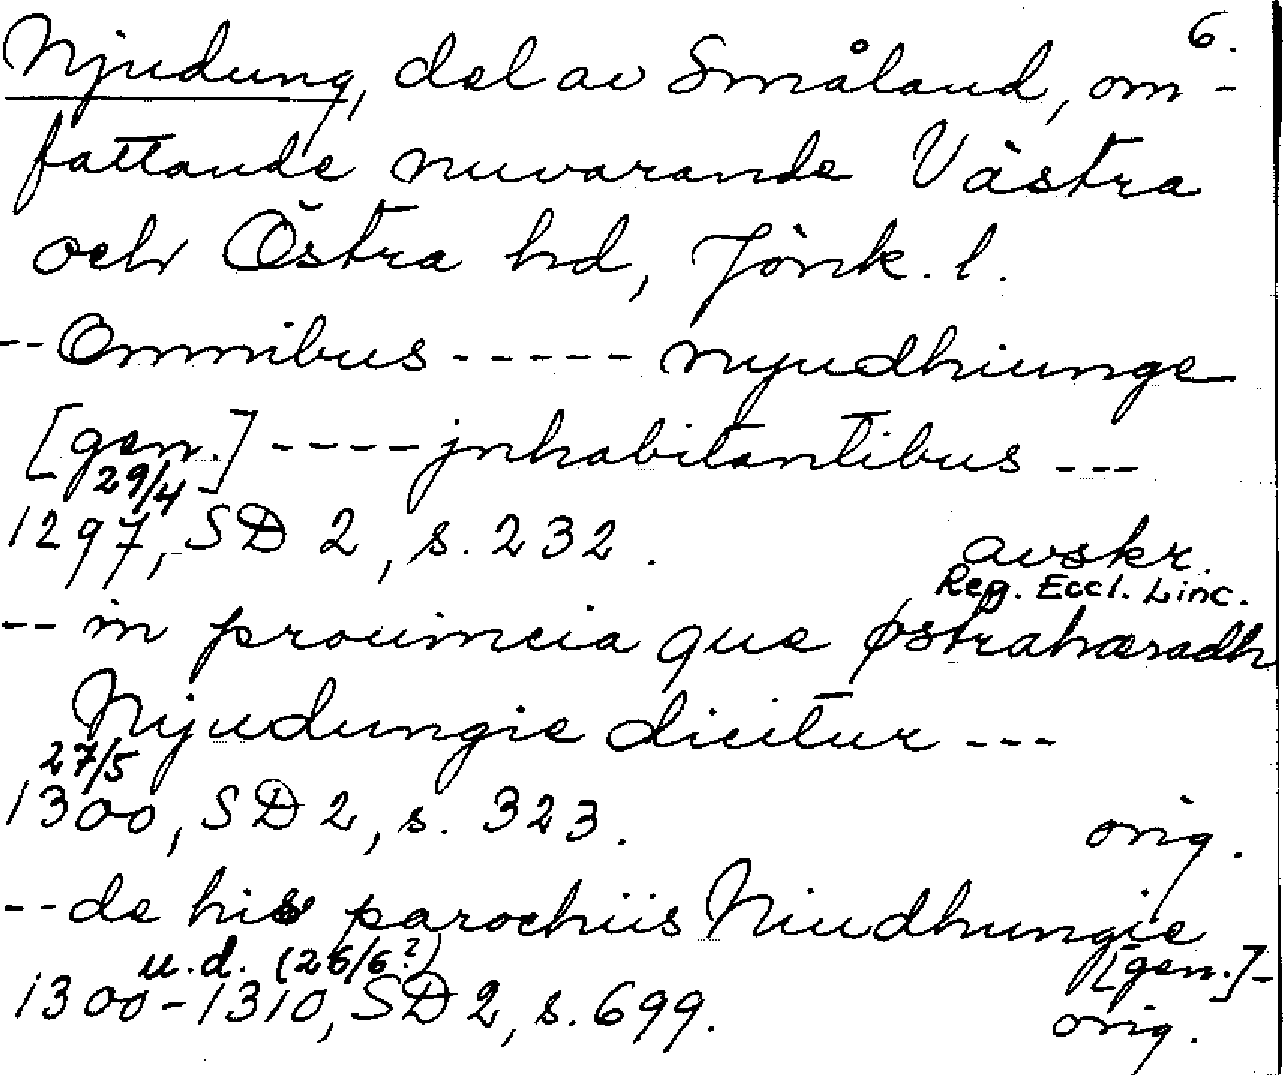 6.
Njudung, del av Småland, om-
fattande nuvarande Västra
och Östra hd, Jönk. l.
-- Omnibus ----- nyudhiunge
[gen.] ---- jnhabitantibus ---
29/4
1297, SD 2, s. 232. avskr.
Reg. Eccl. Linc.
-- in prouincia que østrahæradh
Njudungie dicitur ---
27/5
1300, SD 2, s. 323. orig.
-- de his parochiis Niudhungie
u.d. (26/6?) [gen.]-
1300-1310, SD 2, s. 699. orig.